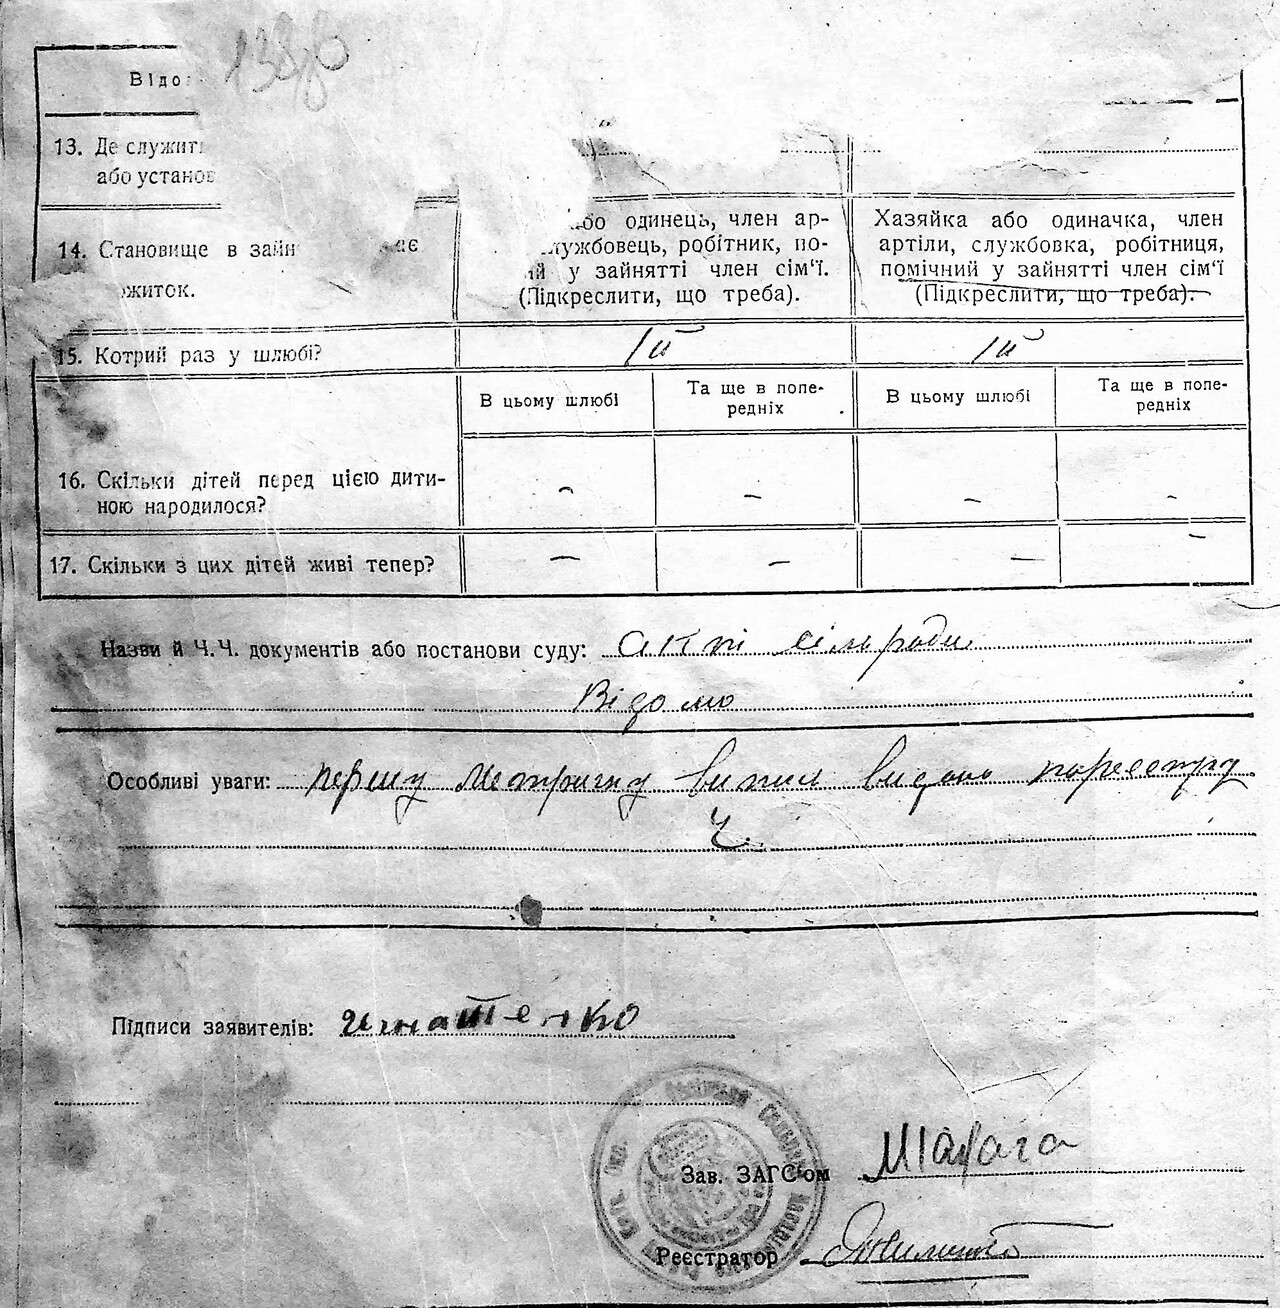 Відо
13. Де служит
або установ
14. Становище в зайн
житок.
бо одинець, член ар-
лужбовець, робітник, по-
й у зайнятті член сім'ї.
(Підкреслити, що треба).
Хазяйка або одиначка, член
артіли, службовка, робітниця,
помічний у зайнятті член сім'ї
(Підкреслити, що треба).
15. Котрий раз у шлюбі?
Iй
Iй
В цьому шлюбі
Та ще в попе-
редніх
В цьому шлюбі
Та ще в попе-
редніх
16. Скільки дітей перед цією дити-
ною народилося?
– – – –
17. Скільки з цих дітей живі тепер?
– – – –
Назви й Ч.Ч. документів або постанови суду: акт сільради
Відомо
Особливі уваги: першу метричну випис видано пореєстру
Ч.
Підписи заявителів: Игнатенко
Зав. ЗАГС'ом
Реєстратор